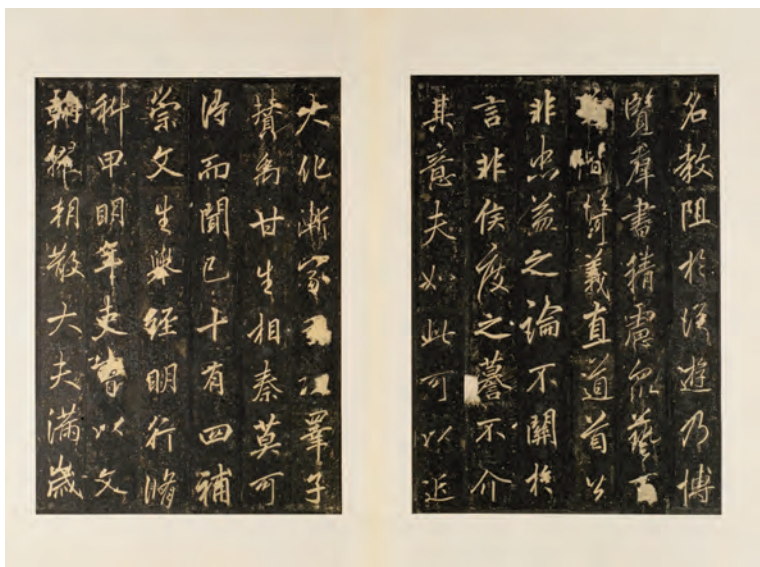 名教阻於從遊乃博
覽羣書精慮眾藝百
偕倚義直道首公
非忠益之論不關於
言非侯度之謩不介
其意夫如此可以近
大化漸家睪子
贊禹甘生相秦莫可
得而聞已十有四補
崇文生舉經明行脩
科甲明年吏以文
翰擢朝散大夫滿歲